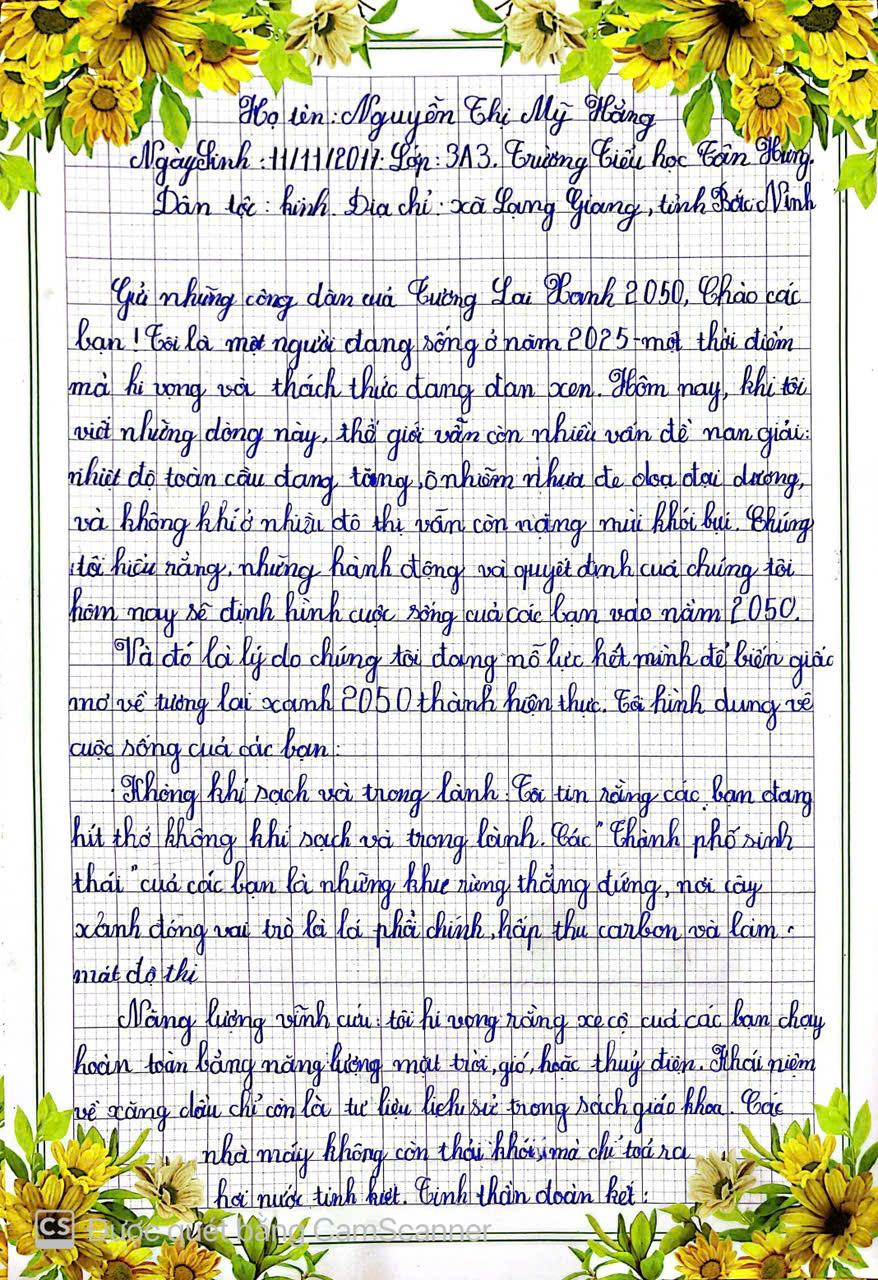 Họ tên: Nguyễn Thị Mỹ Hằng
Ngày Sinh: 11/11/2017. Lớp: 3A3. Trường Tiểu học Tân Hưng.
Dân tộc: kinh. Địa chỉ: xã Lạng Giang, tỉnh Bắc Ninh
Gửi những công dân của Tương Lai Xanh 2050, Chào các
bạn! Tôi là một người đang sống ở năm 2025-một thời điểm
mà hi vọng và thách thức đang đan xen. Hôm nay, khi tôi
viết những dòng này, thế giới vẫn còn nhiều vấn đề nan giải:
nhiệt độ toàn cầu đang tăng, ô nhiễm nhựa đe dọa đại dương,
và không khí ở nhiều đô thị vẫn còn nặng mùi khói bụi. Chúng
tôi hiểu rằng, những hành động và quyết định của chúng tôi
hôm nay sẽ định hình cuộc sống của các bạn vào năm 2050.
Và đó là lý do chúng tôi đang nỗ lực hết mình để biến giấc
mơ về tương lai xanh 2050 thành hiện thực. Tôi hình dung về
cuộc sống của các bạn:
Không khí sạch và trong lành: Tôi tin rằng các bạn đang
hít thở không khí sạch và trong lành. Các "Thành phố sinh
thái" của các bạn là những khu rừng thẳng đứng, nơi cây
xanh đóng vai trò là lá phổi chính, hấp thu carbon và làm
mát đô thị
Năng lượng vĩnh cửu: tôi hi vọng rằng xe cộ của các bạn chạy
hoàn toàn bằng năng lượng mặt trời, gió, hoặc thuỷ điện. Khái niệm
về xăng dầu chỉ còn là tư liệu lịch sử trong sách giáo khoa. Các
nhà máy không còn thải khói, mà chỉ toả ra
hơi nước tinh khiết. Tinh thần đoàn kết:
CS Được quét bằng CamScanner